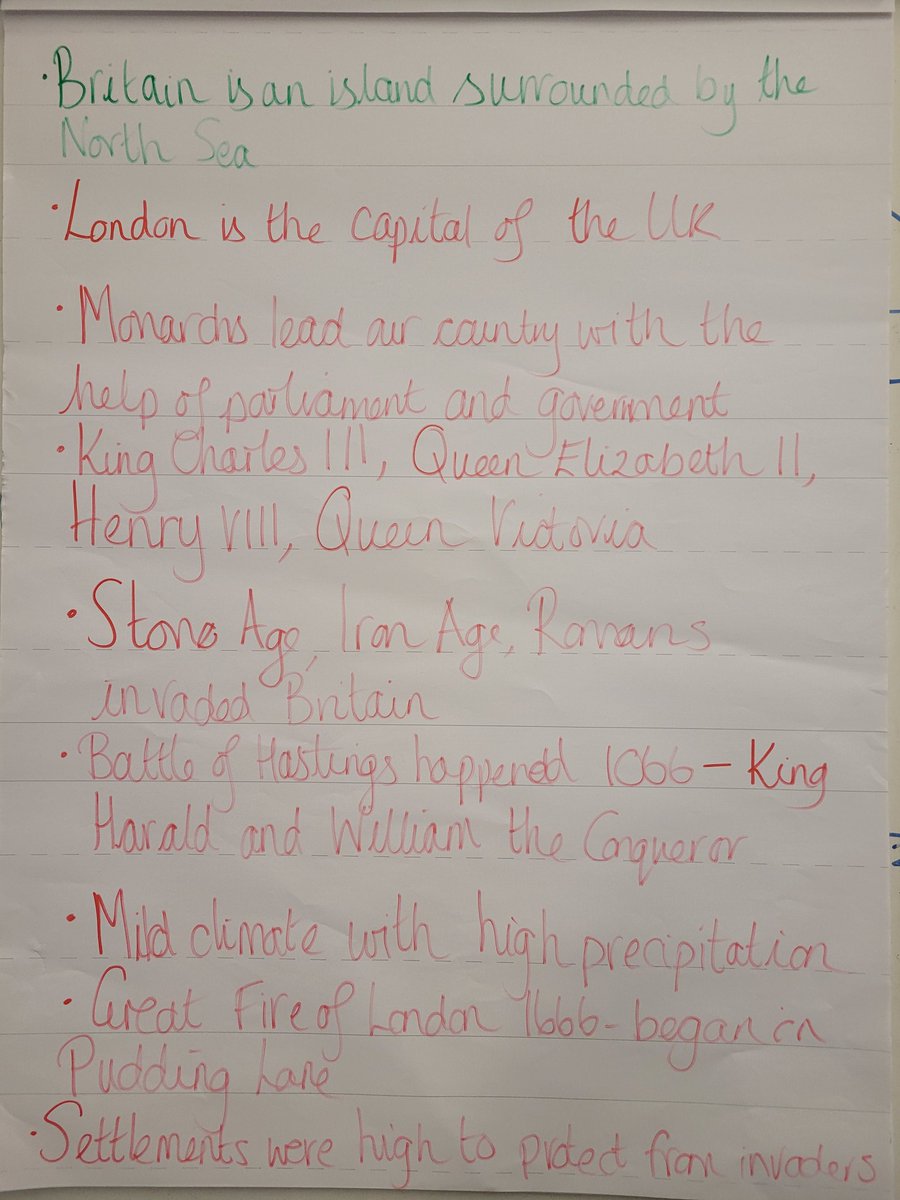 ·Britain is an island surrounded by the
North Sea
·London is the capital of the UK
·Monarchs lead our country with the
help of parliament and government
·King Charles III, Queen Elizabeth II,
Henry VIII, Queen Victoria
·Stone Age, Iron Age, Romans
invaded Britain
·Battle of Hastings happened 1066 – King
Harald and William the Conqueror
·Mild climate with high precipitation
·Great Fire of London 1666 - began in
Pudding Lane
·Settlements were high to protect from invaders